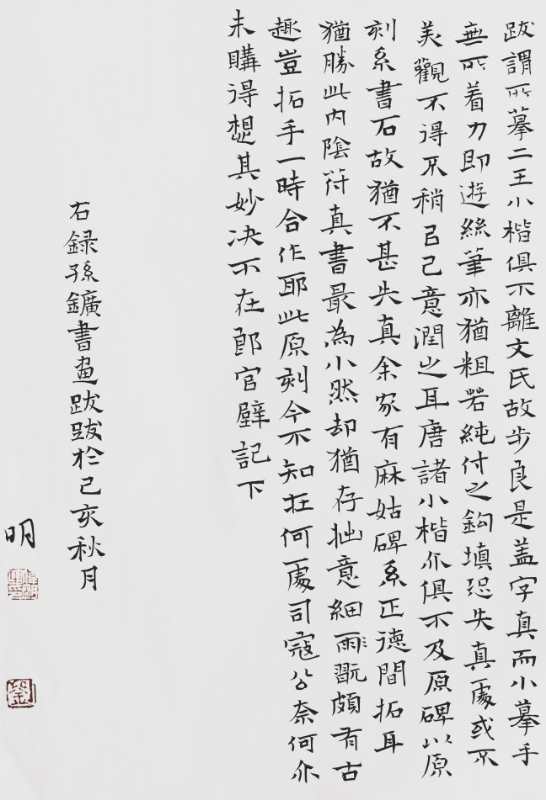 跋謂所摹二王小楷俱不離文氏故步良是盖字真而小摹手
無所着力即遊絲筆亦猶粗若純付之鈎填恐失真處或不
美觀不得不稍㠯己意潤之耳唐諸小楷亦俱不及原碑以原
刻系書石故猶不甚失真余家有麻姑碑系正德間拓耳
猶勝此内陰符真書最為小然却猶存拙意細雨翫頗有古
趣豈拓手一時合作耶此原刻今不知在何處司寇公奈何亦
未購得想其妙决不在郎官壁記下
右録孫鑛書畫跋跋於己亥秋月
明